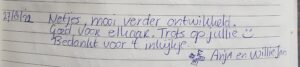 Netjes, mooi verder ontwikkeld.
Goed voor elkaar. Trots op jullie
Bedankt voor 't inkijkje.
Anja en Willie Jan